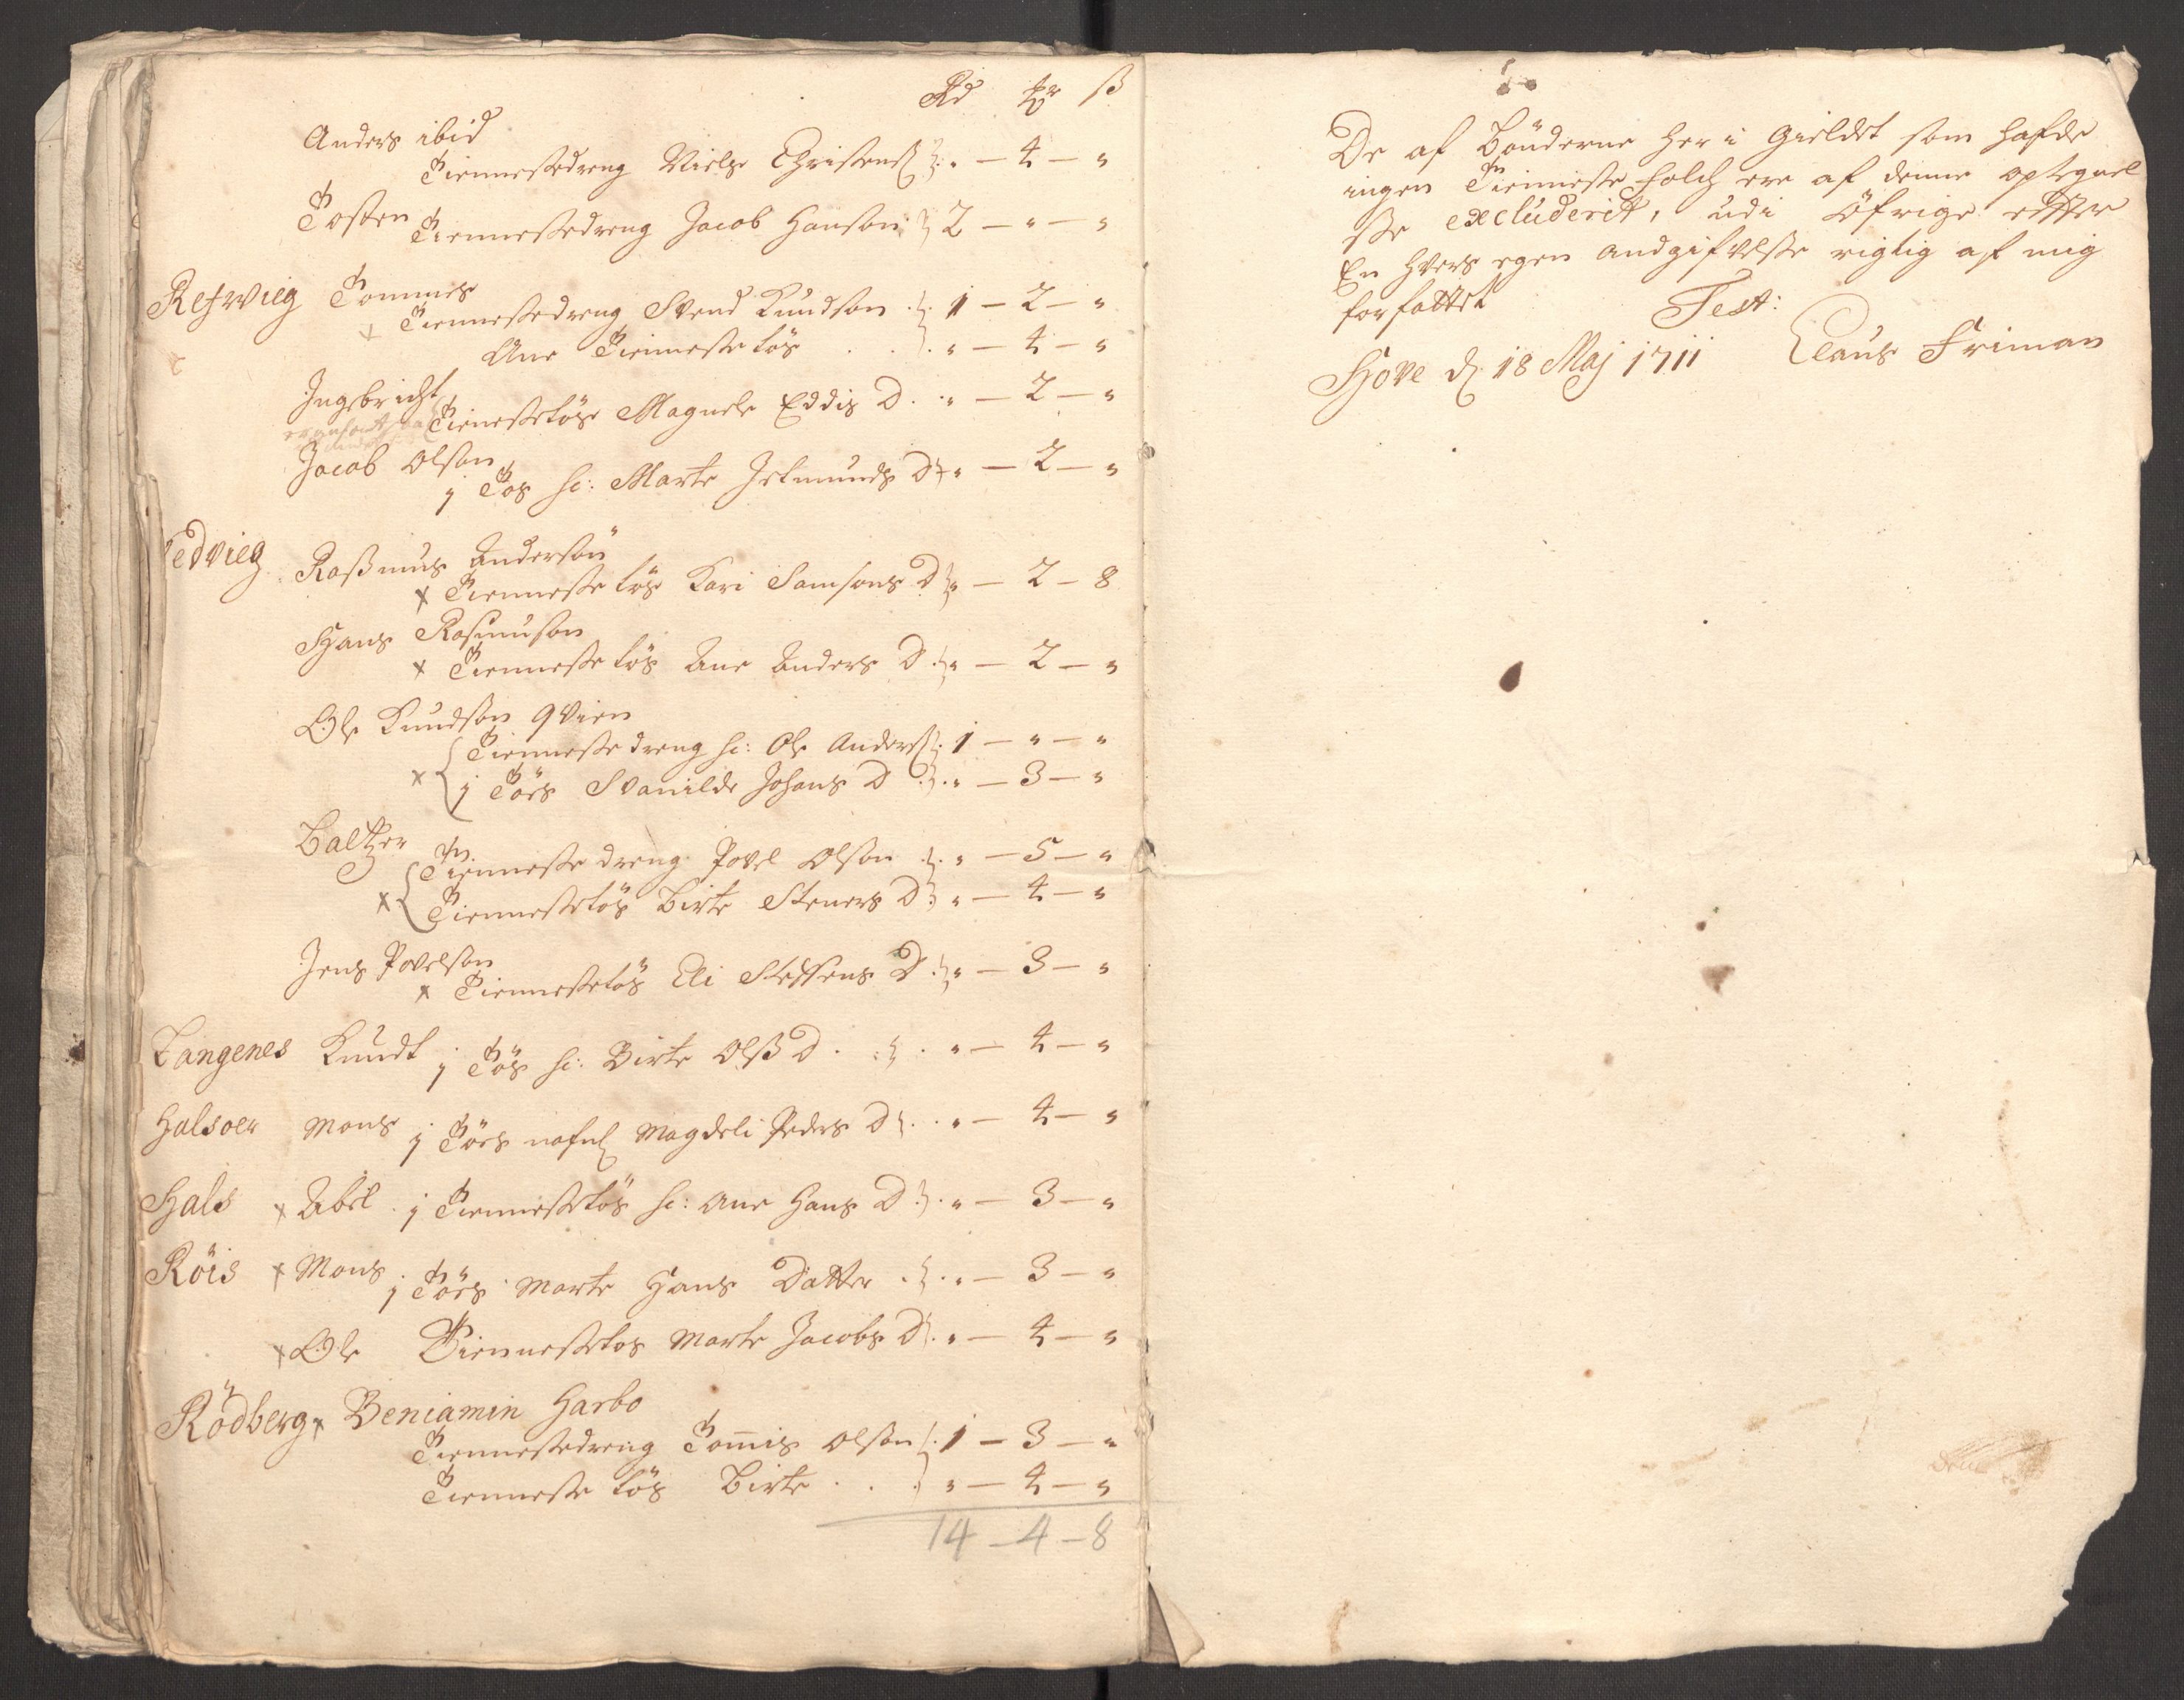 Rd ß
Anders ibid
Tiennestedreng Niels Christens - 4 - "
Tosten Tiennestedreng Jacob Hanson 2 - " - "
Refsvieg Tommes
Tiennestedreng Svend Knudson 1 - 2 - "
Ane Tienneste tös " - 4 - "
Ingebricht
Tienestetöse Magnele Eddis D. " - 2 - "
Jacob Olson
j Tös hc: Marte Jetmunds D " - 2 - "
edvieg Raßmus Anderson
x Tienneste tös Kari Samsons D " - 2 - 8
Hans Rasmuson
x Tienneste tös Ane Anders D " - 2 - "
Ole Knudson qvien
x Tienneste dreng hc: Ole Anders 1 - " - "
j Töes Svanilde Johans D " - 3 - "
Baltzer
Tienneste dreng Povel Olson " - 5 - "
x Tiennestetös Birte Steners D " - 4 - "
Jens Povelson
x Tiennestetös Eli Steffens D " - 3 - "
Langenes Knudt j Tös hc: Birte Olß D. " - 4 - "
Halsoer Mons j Töes nafnl Magdeli Peders D " - 4 - "
Hals x Abel j Tiennestetös hc: Ane Hans D " - 3 - "
Röis x Mons j Töes Marte Hans Datter " - 3 - "
x Ole Tiennestetos Marte Jacobs D " - 4 - "
Rödberg x Beniamin Harbo
Tiennestedreng Tomis Olson 1 - 3 - "
Tienneste tös Birte " - 4 - "
14 - 4 - 8
De af Bönderne her i Gieldet som hafde
ingen Tienneste folch ere af denne optegnel
sse excluderit, udi öfrige efter
En hvers egen andgifvelße rigtig af mig
forfattet Test:
Hove d 18 Maj 1711 Claus Friman